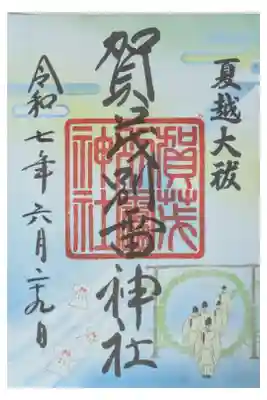 夏越大祓
賀茂別雷神社
賀茂別雷神社
令和七年六月二十九日